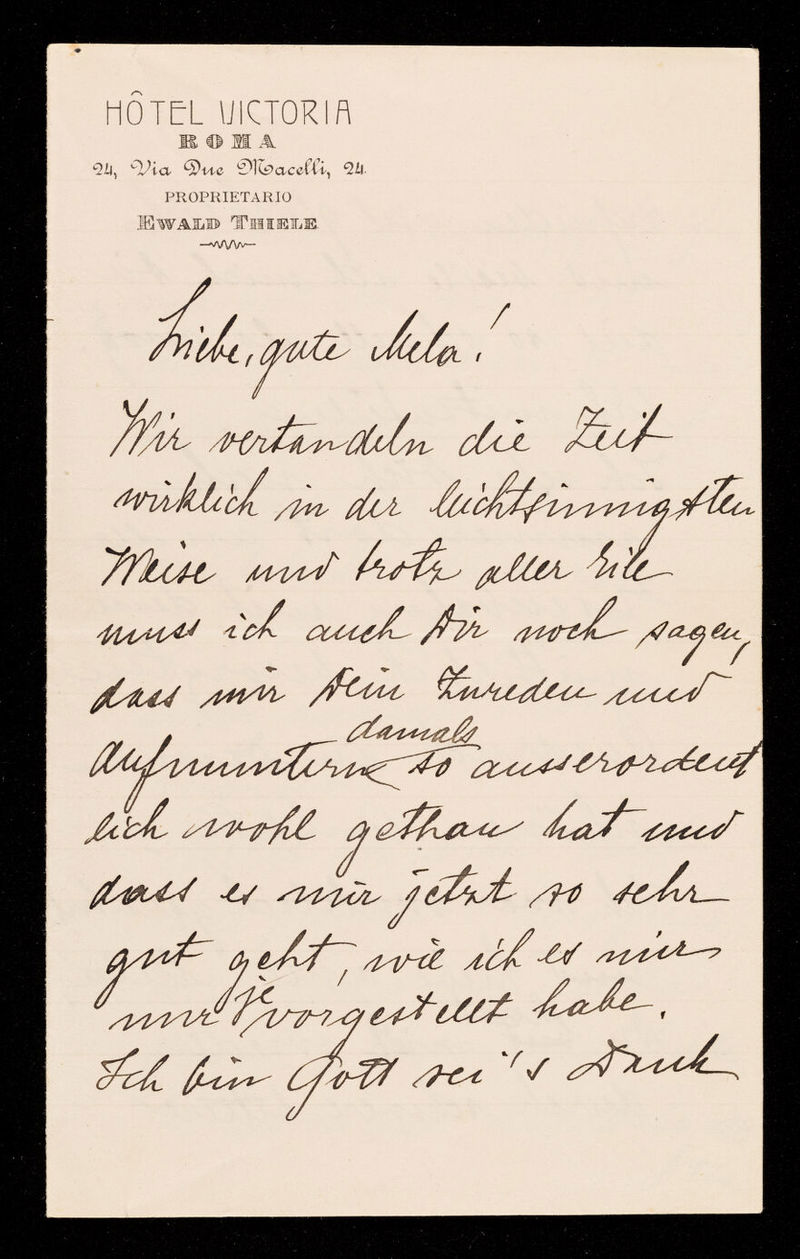 HÔTEL VICTORIA
ROMA
24, Via Due Macelli, 24.
PROPRIETARIO
EWALD THIELE
Liebe, gute Mela!
Wir vertandeln die Zeit
wirklich in der leichtsinnigsten
Weise und trotz aller Eile
muss ich auch Dir noch sagen,
dass mir Dein Zureden und
damals
Aufmuntern so ausserordent
lich wohl gethan hat und
dass es mir jetzt so sehr
gut geht, wie ich es mir
nur je vorgestellt habe.
Ich bin Gott sei's Dank